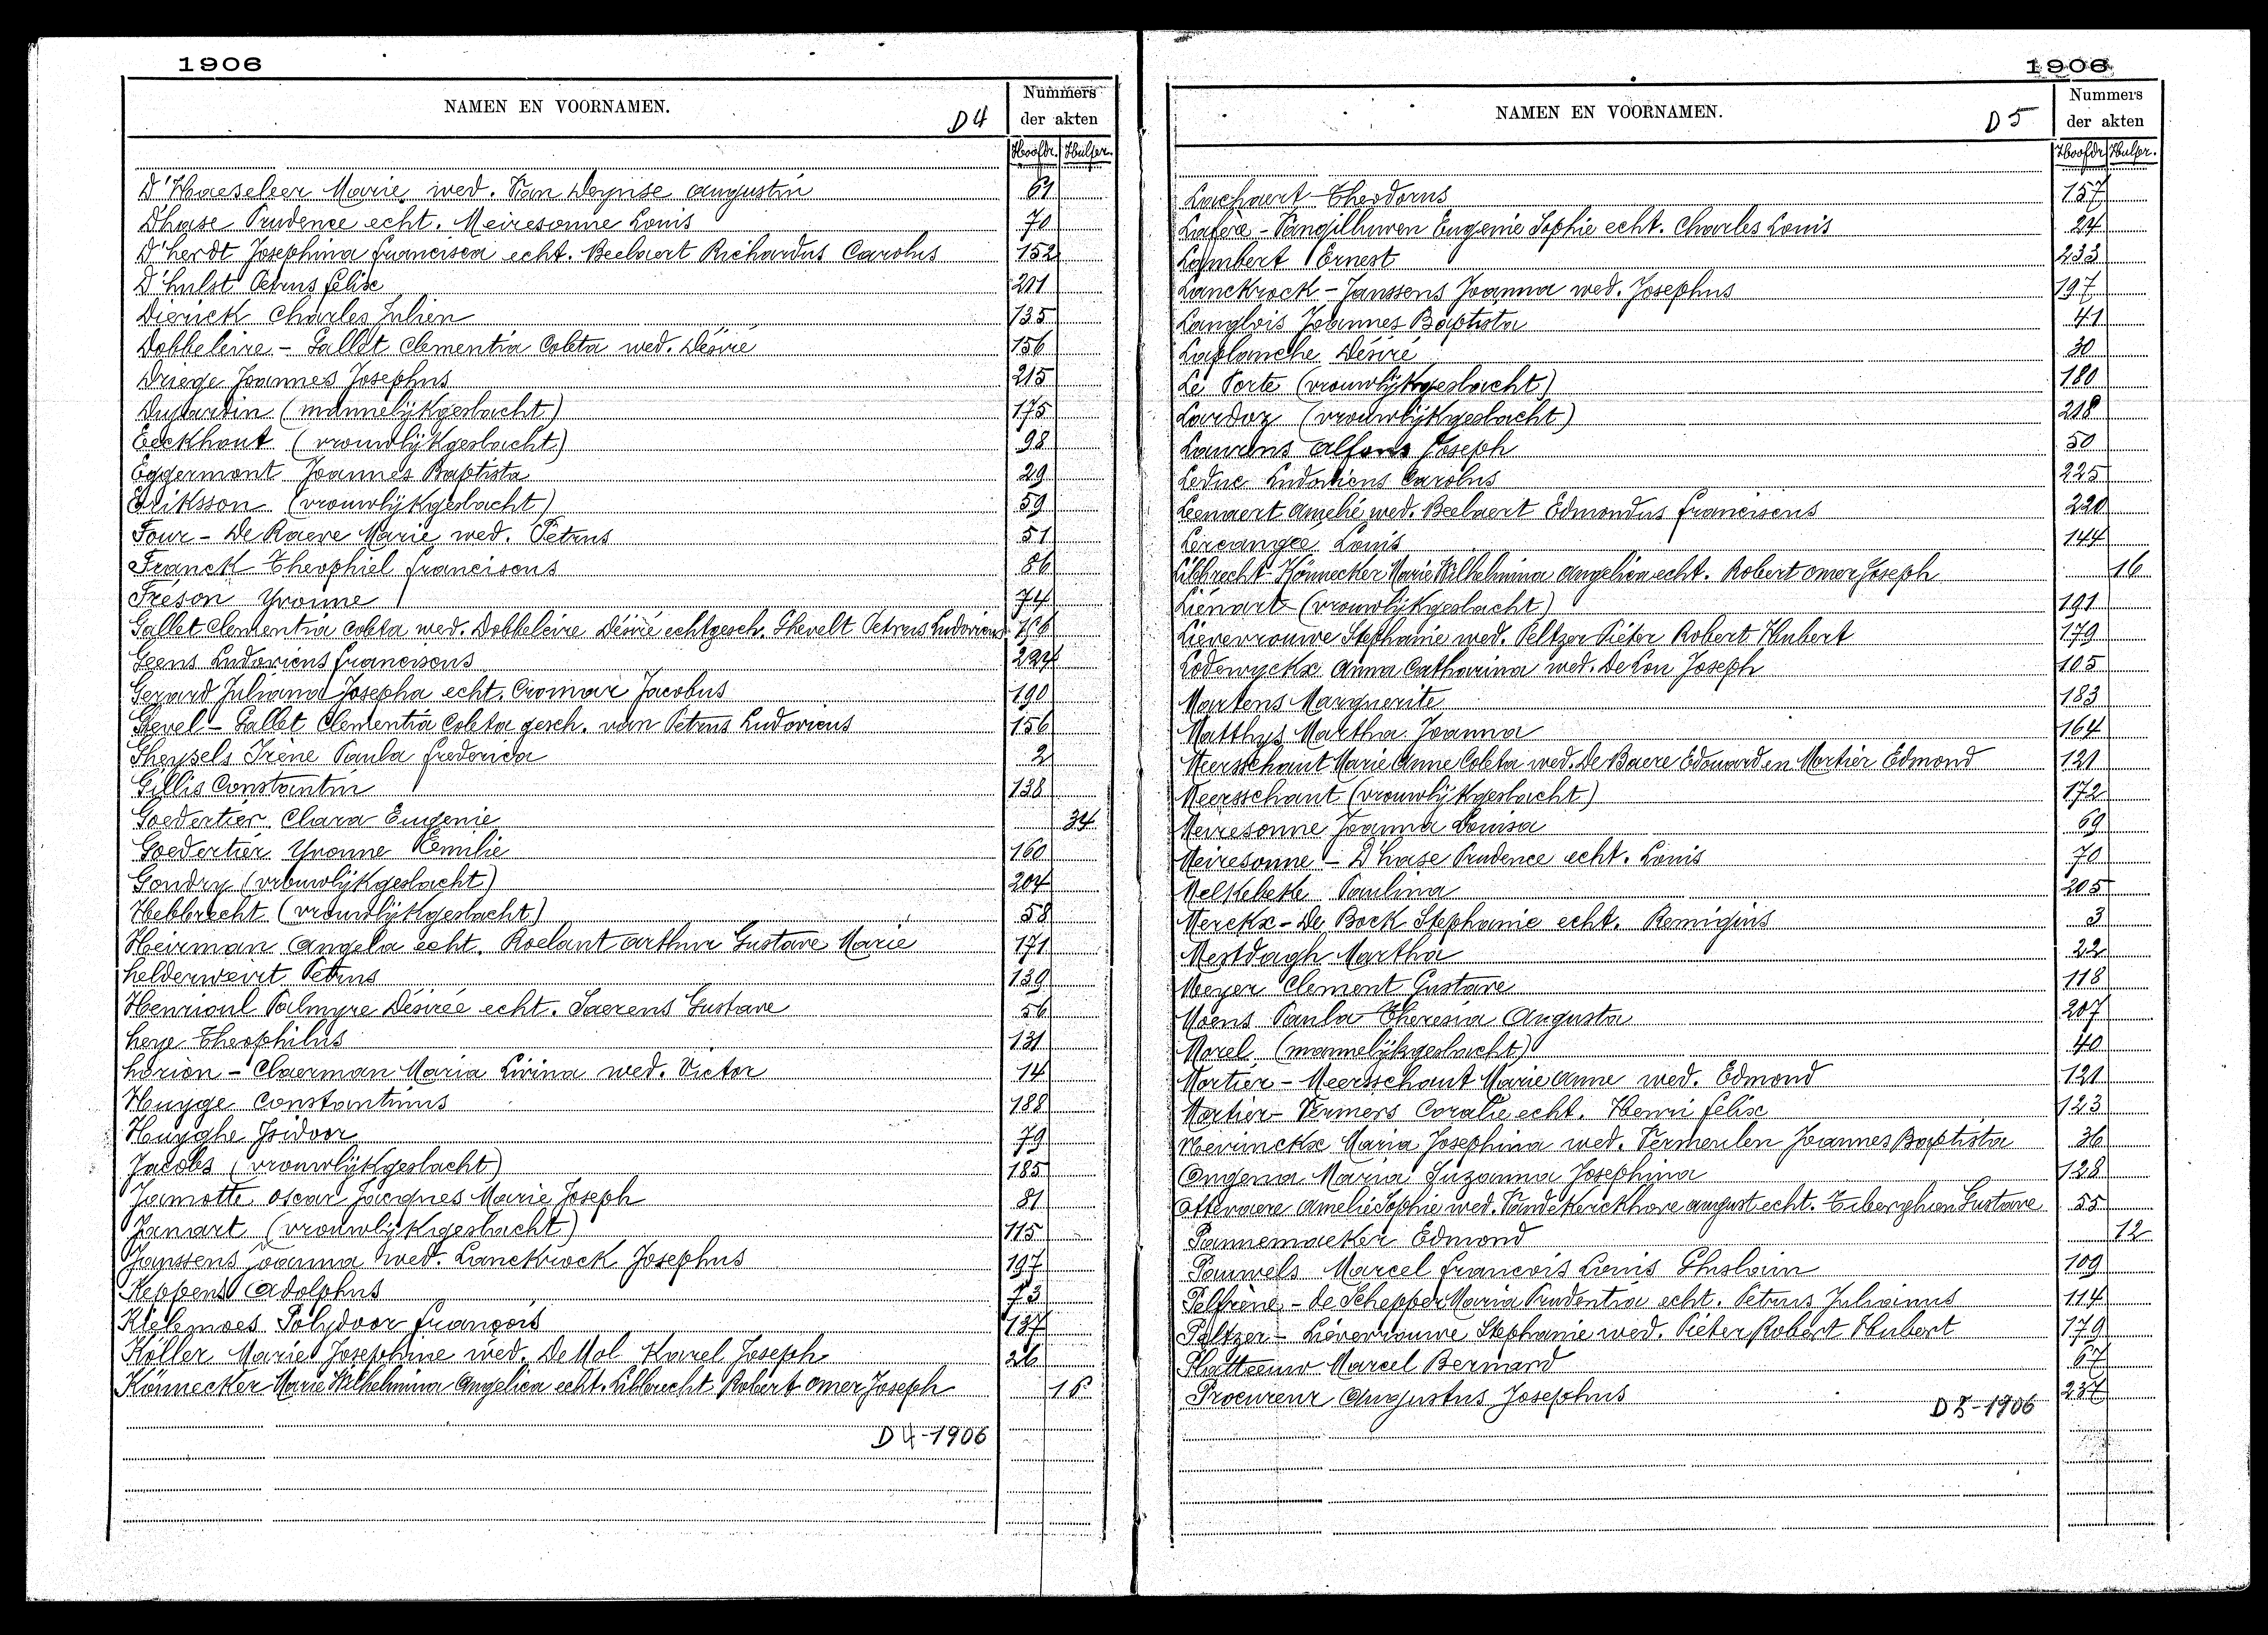 1906
NAMEN EN VOORNAMEN.
D4
Nummers
der akten
Hoofdr. Hulpr.
D'Haeseleer Marie wed. Van Deynse Augustin 61
Dhase Prudence echt. Meiresonne Louis 70
D'herdt Josephina francisca echt. Beelaert Richardus Carolus 152
D'hulst Petrus felix 201
Dierick Charles Julien 135
Dobbeleire - Gallet Clementia Coleta wed. Désiré 156
Driege Joannes Josephus 215
Dujardin (mannelijkgeslacht) 175
Eeckhout (vrouwlijkgeslacht) 98
Eggermont Joannes Baptista 29
Eriksson (vrouwlijkgeslacht) 59
Four - De Raeve Marie wed. Petrus 51
Franck Theophiel franciscus 86
Fréson Yvonne 74
Gallet Clementia Coleta wed. Dobbeleire Désiré echtgesch. Ghevelt Petrus Ludovicus 156
Geens Ludovicus franciscus 224
Gerard Juliana Josepha echt. Cromar Jacobus 190
Gevel - Gallet Clementia Coleta gesch. van Petrus Ludovicus 156
Gheysels Irène Paula frederica 2
Gillis Constantin 138
Goedertier Clara Eugenie 34
Goedertier Yvonne Emilie 160
Gondry (vrouwlijkgeslacht) 204
Hebbrecht (vrouwlijkgeslacht) 58
Heirman Angela echt. Roelant Arthur Gustave Marie 171
helderweirt Petrus 139
Henrioul Palmyre Désirée echt. Saerens Gustave 56
heye Theophilus 131
horion - Claerman Maria Livina wed. Victor 14
Huyge Constantinus 188
Huyghe Isidoor 79
Jacobs (vrouwlijkgeslacht) 185
Jamotte Oscar Jacques Marie Joseph 81
Janart (vrouwlijkgeslacht) 115
Janssens Joanna wed. Lanckrock Josephus 197
Keppens Adolphus 73
Kielemoes Polydoor François 137
Köller Marie Josephine wed. De Mol Karel Joseph 26
Könnecker Marie Wilhelmina Angelica echt. Libbrecht Robert Omer Joseph 16
D4-1906
1906
NAMEN EN VOORNAMEN.
D5
Nummers
der akten
Hoofdr. Hulpr.
Lachaert Theodorus 157
Lafère - Vangilluwen Eugenie Sophie echt. Charles Louis 24
Lambert Ernest 233
Lanckrock - Janssens Joanna wed. Josephus 197
Langlois Joannes Baptista 41
Laplanche Désiré 30
La Porte (vrouwlijkgeslacht) 180
Lardoz (vrouwlijkgeslacht) 218
Laurens Alfons Joseph 50
Leduc Ludovicus Carolus 225
Leenaert Amelie wed. Beelaert Edmondus franciscus 220
Lercangée Louis 144
Libbrecht - Könnecker Marie Wilhelmina Angelica echt. Robert Omer Joseph 16
Liénart (vrouwlijkgeslacht) 191
Lievevrouwe Stephanie wed. Peltzer Piéter Robert Hubert 179
Lodewyckx Anna Catharina wed. De Lou Joseph 105
Martens Marguerite 183
Matthys Martha Joanna 164
Meersschaut Marie Anne Coleta wed. De Baere Edouard en Mortier Edmond 121
Meersschaut (vrouwlijkgeslacht) 172
Meiresonne Joanna Louisa 69
Meiresonne - D'hase Prudence echt. Louis 70
Melkebeke Paulina 205
Merckx - De Bock Stephanie echt. Remigius 3
Mestdagh Martha 22
Meyer Clement Gustave 118
Moens Paula Theresia Augusta 207
Morel (mannelijkgeslacht) 40
Mortier - Meersschaut Marie Anne wed. Edmond 121
Mortier - Vermers Coralie echt. Henri felix 123
Nevinckx Maria Josephina wed. Vermeulen Joannes Baptista 36
Ongena Maria Suzanna Josephina 128
Ottevaere Amelie Sophie wed. Vande Kerckhove August echt. Tiberghien Gustave 55
Pannemaeker Edmond 12
Pauwels Marcel françois Louis Ghislain 109
Pelfrène - De Schepper Maria Prudentia echt. Petrus Julianus 114
Peltzer - Liévevrouwe Stephanie wed. Piéter Robert Hubert 179
Platteeuw Marcel Bernard 67
Procureur Augustus Josephus 237
D5-1906